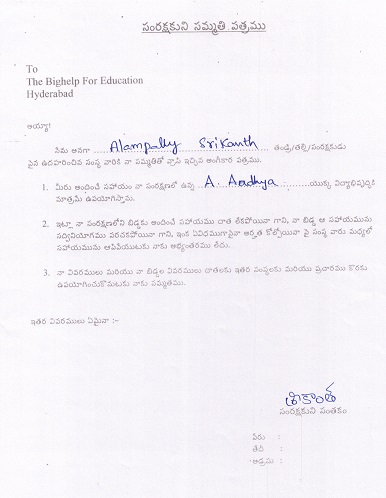 సంరక్షకుని సమ్మతి పత్రము
To
The Bighelp For Education
Hyderabad
అయ్యా!
నేను అనగా Alampally Srikanth తండ్రి/తల్లి/సంరక్షకుడు
పైన ఉదహరించిన సంస్థ వారికి నా సమ్మతితో వ్రాసి ఇచ్చిన అంగీకార పత్రము.
1. మీరు అందించే సహాయం నా సంరక్షణలో ఉన్న A. Aadhya యొక్క విద్యాభివృద్ధికి
మాత్రమే ఉపయోగిస్తాను.
2. ఇట్లా నా సంరక్షణలోని బిడ్డకు అందించే సహాయము చాత లేకపోయినా గాని, నా బిడ్డ ఆ సహాయమును
సద్వినియోగము పరచకపోయినా గాని, ఇంక ఏవిధముగానైనా అర్హత కోల్పోయినా పై సంస్థ వారు మధ్యలో
సహాయమును ఆపివేయుటకు నాకు అభ్యంతరము లేదు.
3. నా వివరములు మరియు నా బిడ్డల వివరములు దాతలకు ఇతర సంస్థలకు మరియు ప్రచారము కొరకు
ఉపయోగించుకొనుటకు నాకు సమ్మతము.
ఇతర వివరములు ఏమైనా :-
శ్రీకాంత్
సంరక్షకుని సంతకం
పేరు :
తేదీ :
అడ్రసు :